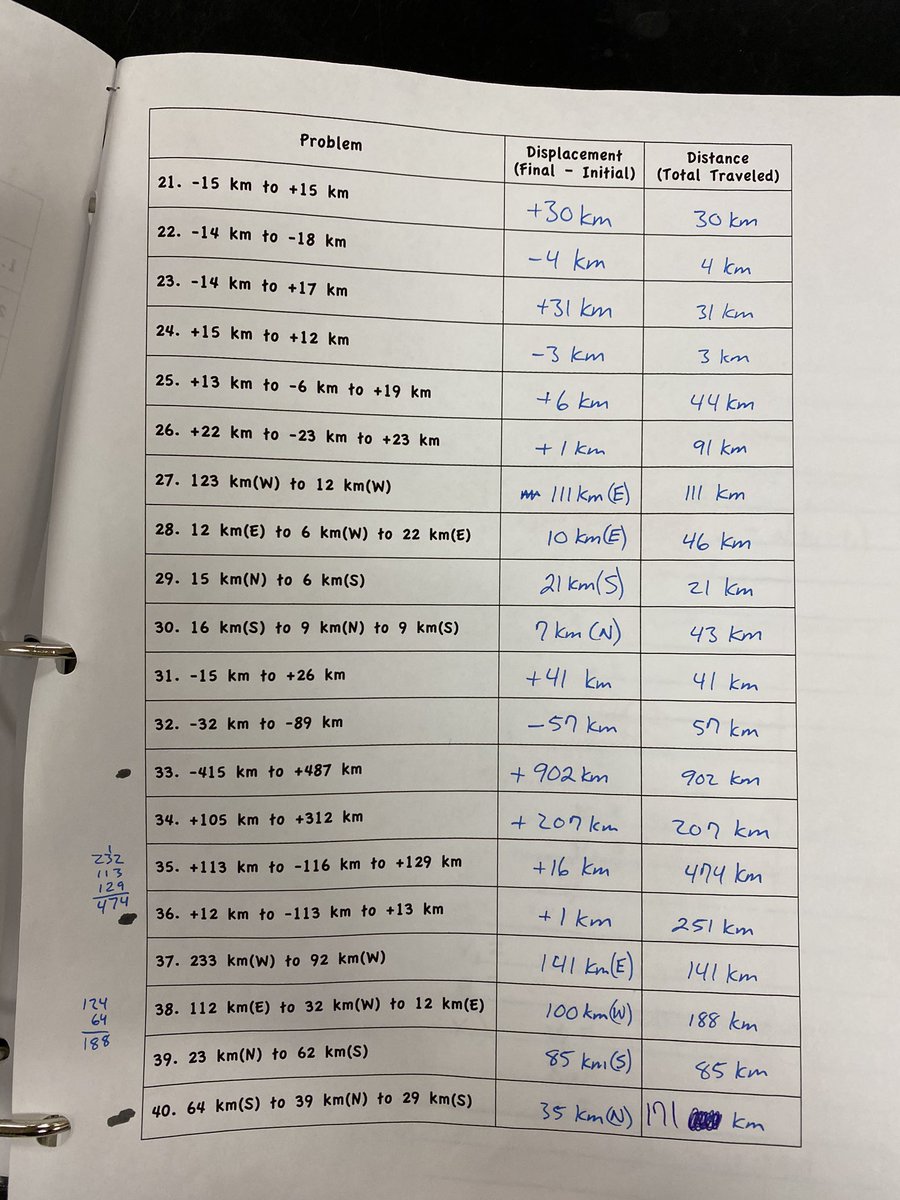 Problem
Displacement
(Final - Initial)
Distance
(Total Traveled)
21. -15 km to +15 km +30 km 30 km
22. -14 km to -18 km -4 km 4 km
23. -14 km to +17 km +31 km 31 km
24. +15 km to +12 km -3 km 3 km
25. +13 km to -6 km to +19 km +6 km 44 km
26. +22 km to -23 km to +23 km +1 km 91 km
27. 123 km(W) to 12 km(W) 111 km(E) 111 km
28. 12 km(E) to 6 km(W) to 22 km(E) 10 km(E) 46 km
29. 15 km(N) to 6 km(S) 21 km(S) 21 km
30. 16 km(S) to 9 km(N) to 9 km(S) 7 km (N) 43 km
31. -15 km to +26 km +41 km 41 km
32. -32 km to -89 km -57 km 57 km
33. -415 km to +487 km +902 km 902 km
34. +105 km to +312 km +207 km 207 km
35. +113 km to -116 km to +129 km +16 km 474 km
1
232
113
129
474
36. +12 km to -113 km to +13 km +1 km 251 km
37. 233 km(W) to 92 km(W) 141 km(E) 141 km
38. 112 km(E) to 32 km(W) to 12 km(E) 100 km(W) 188 km
124
64
188
39. 23 km(N) to 62 km(S) 85 km(S) 85 km
40. 64 km(S) to 39 km(N) to 29 km(S) 35 km(N) 171 km